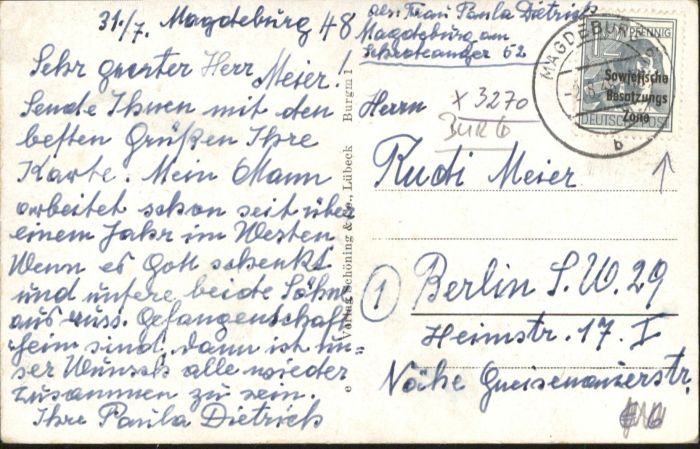 31./7. Magdeburg 48
Sehr geerter Herr Meier!
Sende Ihnen mit den
besten Grüßen Ihre
Karte. Mein Mann
arbeitet schon seit über
einem Jahr im Westen
Wenn es Gott schenkt
und unsere beide Söhne
aus russ. Gefangenschaft
heim sind. dann ist un-
ser Wunsch alle wieder
zusammen zu sein.
Ihre Paula Dietrich
Verlag Schöning & Co., Lübeck Burgm 1
abs. Frau Paula Dietrich
Magdeburg am
Schroteanger 62
MAGDEBURG
b
12 PFENNIG
Sowjetische
Besatzungs
Zone
DEUTSCHE POST
Herrn
x 3270
BURG
Rudi Meier
1 Berlin S.W. 29
Heimstr. 17. I
Nähe Gneisenauerstr.